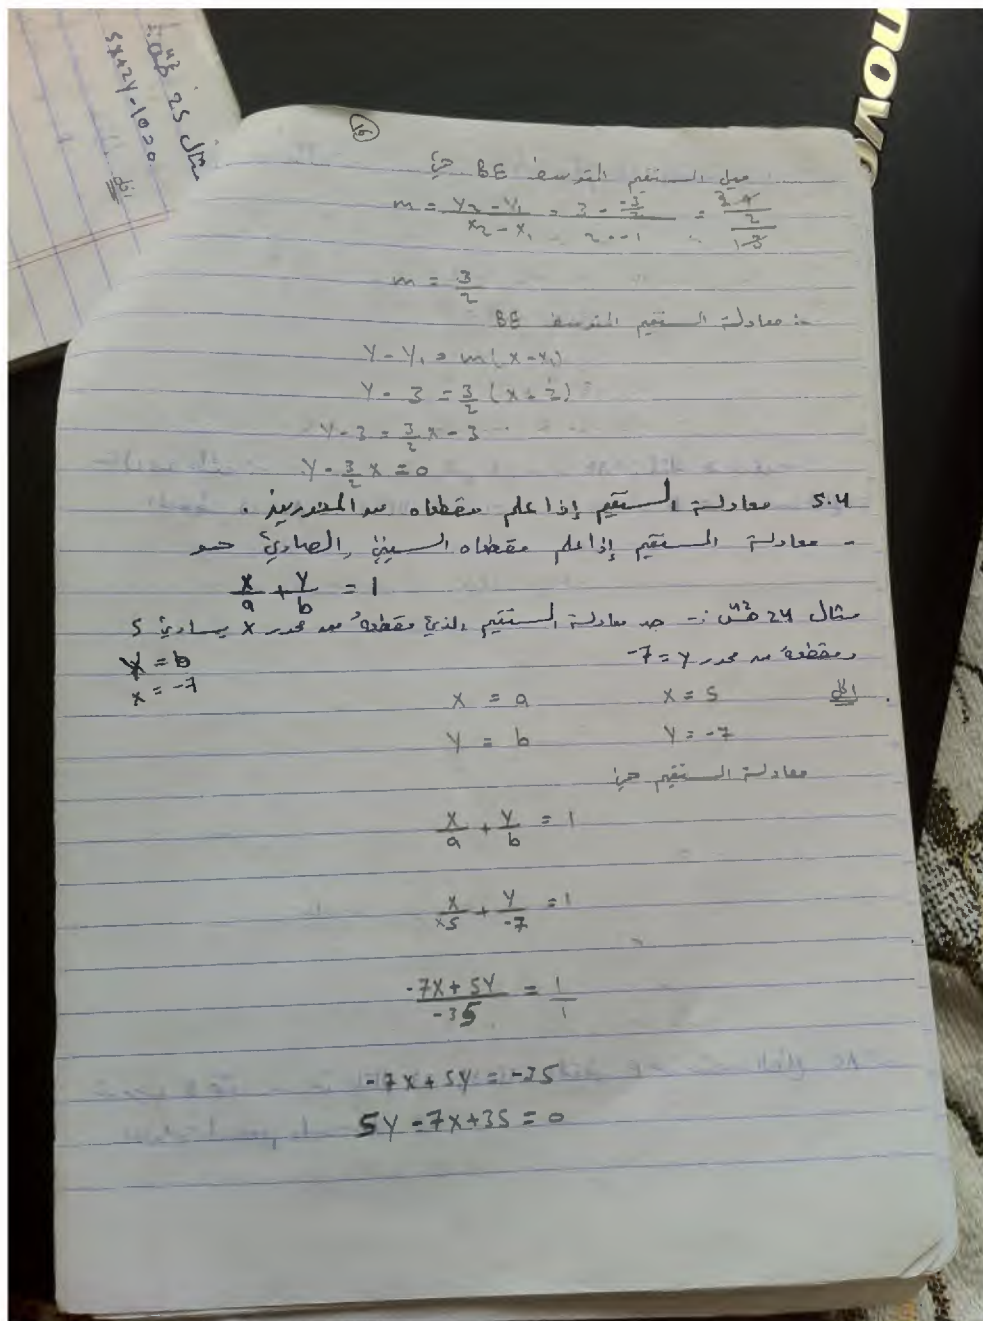 مثال 25 ص43
5x+2y-10=0
الحل
novo
16
ميل المستقيم المتوسط BE هي
m = y2 - y1 / x2 - x1 = 3 - -3/2 / 2 - -1 = 9/2 / 3
m = 3/2
∴ معادلة المستقيم المتوسط BE
y - y1 = m(x - x1)
y - 3 = 3/2 (x - 2)
y - 3 = 3/2 x - 3
y - 3/2 x = 0
5.4 معادلة المستقيم إذا علم مقطعاه من المحورين .
- معادلة المستقيم إذا علم مقطعاه السيني والصادي هو
x/a + y/b = 1
مثال 24 ص43 :- جد معادلة المستقيم الذي مقطعه من محور x يساوي 5
ومقطعه من محور y = -7
y = b
x = -7
الحل
x = a x = 5
y = b y = -7
معادلة المستقيم هي
x/a + y/b = 1
x/5 + y/-7 = 1
-7x + 5y / -35 = 1/1
-7x + 5y = -35
5y - 7x + 35 = 0